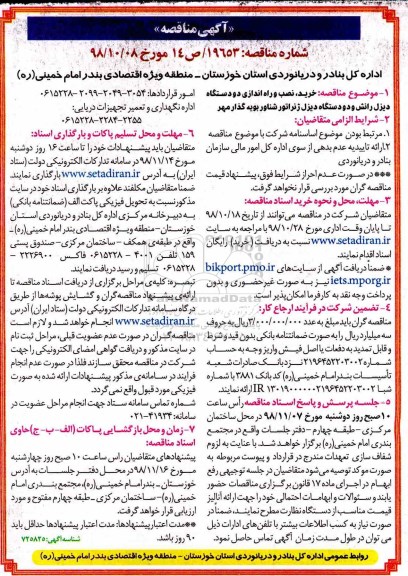 «آگهی مناقصه»
شماره مناقصه: ۱۹۶۵۳/ص۱۴ مورخ ۹۸/۱۰/۰۸
اداره کل بنادر و دریانوردی استان خوزستان - منطقه ویژه اقتصادی بندر امام خمینی(ره)
۱- موضوع مناقصه: خرید، نصب و راه اندازی دو دستگاه
دیزل رانش و دو دستگاه دیزل ژنراتور شناور بویه گذار مهر
۲- شرایط الزامی متقاضیان:
۱. مرتبط بودن موضوع اساسنامه شرکت با موضوع مناقصه
۲. ارائه تاییدیه عدم بدهی از سوی اداره کل امور مالی سازمان
بنادر و دریانوردی
** در صورت عدم احراز شرایط فوق، پیشنهاد قیمت
مناقصه گران مورد بررسی قرار نخواهد گرفت.
۳- مهلت، محل و نحوه خرید اسناد مناقصه:
متقاضیان شرکت در مناقصه می توانند از تاریخ ۹۸/۱۰/۱۸
تا پایان وقت اداری مورخ ۹۸/۱۰/۲۸ با مراجعه به سایت
www.setadiran.ir نسبت به دریافت (خرید) رایگان
اسناد اقدام نمایند.
* ضمناً دریافت آگهی از سایت های bikport.pmo.ir
iets.mporg.ir نیز به صورت غیرحضوری و بدون
پرداخت وجه نقد به کارفرما امکان پذیر است.
۴- تضمین شرکت در فرآیند ارجاع کار:
مناقصه گران باید مبلغ به عدد ۳/۰۰۰/۰۰۰/۰۰۰ ریال به حروف
سه میلیارد ریال را به صورت ضمانتنامه بانکی بدون قید و شرط
و قابل تمدید به دفعات یا اصل فیش واریز وجه به حساب
شماره ۲۱۷۹۶۴۵۲۲۰۳۰۰۲ نزد بانک صادرات شعبه
تأسیسات بندر امام خمینی(ره) کد بانک ۳۸۸۱ با شماره
شبا IR ۱۳۰۱۹۰۰۰۰۰۰۲۱۷۹۶۴۵۲۲۰۳۰۰۲ ارائه نمایند.
۵- جلسه پرسش و پاسخ اسناد مناقصه رأس ساعت
۱۰ صبح روز دوشنبه مورخ ۹۸/۱۱/۰۷ در محل ساختمان
مرکزی - طبقه چهارم - دفتر جلسات واقع در مجتمع
بندری امام خمینی(ره) برگزار خواهد شد. با عنایت به لزوم
شفاف سازی تعهدات مندرج در قرارداد و پیوست مربوطه به
صورت موکد توصیه می شود متقاضیان در جلسه توجیهی رفع
ابهام در اجرای ماده ۱۷ قانون برگزاری مناقصات حضور
یابند و سئوالات و ابهامات احتمالی خود را جهت ارائه آنالیز
قیمت مناسب از دستگاه نظارت مطرح نمایند، ضمناً در
صورت نیاز به کسب اطلاعات بیشتر با تلفن های ادارات ذیل
می توان در طول مدت زمان آگهی تماس حاصل نمود.
امور قراردادها: ۳۰۵۴-۲۰۴۹-۲۰۹۹-۰۶۱۵۲۲۸
اداره نگهداری و تعمیر تجهیزات دریایی:
۲۲۵۵-۲۲۸۴-۰۶۱۵۲۲۸
۶- مهلت و محل تسلیم پاکات و بارگذاری اسناد:
متقاضیان باید پیشنهادات خود را تا ساعت ۱۶ روز دوشنبه
مورخ ۹۸/۱۱/۱۴ در سامانه تدارکات الکترونیکی دولت (ستاد
ایران) به آدرس www.setadiran.ir بارگذاری نمایند.
ضمناً متقاضیان مکلفند علاوه بر بارگذاری اسناد خود در سایت
مذکور نسبت به تحویل فیزیکی پاکت الف (ضمانتنامه بانکی)
به دبیرخانه مرکزی اداره کل بنادر و دریانوردی استان
خوزستان - منطقه ویژه اقتصادی بندر امام خمینی(ره) -
واقع در طبقه ی همکف - ساختمان مرکزی - صندوق پستی
۱۵۹ تلفن ۴۰۰۱ - ۰۶۱۵۲۲۸ فاکس ۲۲۲۶۹۰۰ -
۰۶۱۵۲۲۸ تسلیم و رسید دریافت نمایند.
تبصره: کلیه ی مراحل برگزاری از دریافت اسناد مناقصه تا
ارائه ی پیشنهاد مناقصه گران و گشایش پوشه ها از طریق
درگاه سامانه تدارکات الکترونیکی دولت (ستاد ایران) آدرس
www.setadiran.ir انجام خواهد شد و لازم است
مناقصه گران در صورت عدم عضویت قبلی، مراحل ثبت نام
در سایت مذکور و دریافت گواهی امضای الکترونیکی را جهت
شرکت در مناقصه محقق سازند فلذا در صورت عدم انجام
فرآیند در سامانه ی مذکور پیشنهادات ارائه شده به صورت
فیزیکی مورد قبول واقع نمی گردد.
شماره تماس سامانه ستاد جهت انجام مراحل عضویت در
سامانه: ۴۱۹۳۴-۰۲۱
۷- زمان و محل بازگشایی پاکات (الف - ب - ج) حاوی
اسناد مناقصه:
پیشنهادهای متقاضیان راس ساعت ۱۰ صبح روز چهارشنبه
مورخ ۹۸/۱۱/۱۶ در محل دفتر جلسات به آدرس
خوزستان - بندر امام خمینی(ره)، مجتمع بندری امام
خمینی(ره) - ساختمان مرکزی - طبقه چهارم مفتوح و مورد
ارزیابی قرار خواهد گرفت.
** مدت اعتبار پیشنهادها: مدت اعتبار پیشنهادها حداقل باید
۹۰ روز باشد.
شناسه آگهی: ۷۲۵۸۲۵
روابط عمومی اداره کل بنادر و دریانوردی استان خوزستان - منطقه ویژه اقتصادی بندر امام خمینی (ره)